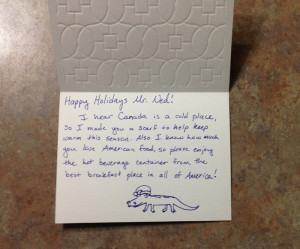 Happy Holidays Mr. Ned!
I hear Canada is a cold place,
so I made you a scarf to help keep
warm this season. Also I know how much
you love American food, so please enjoy
the hot beverage container from the
best breakfast place in all of America!